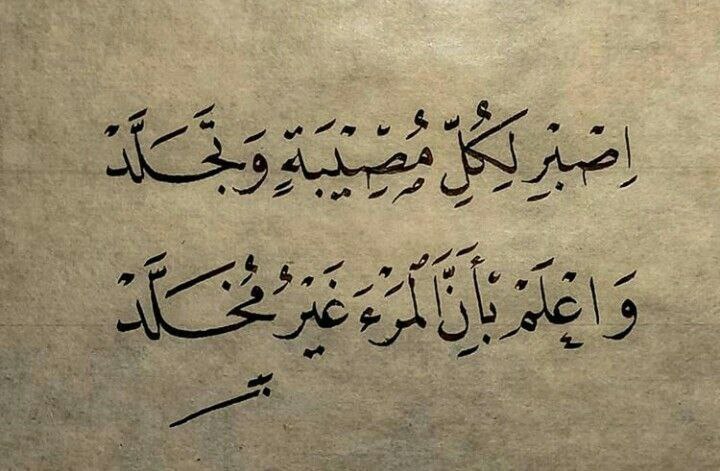 اِصْبِرْ لِكُلِّ مُصِيْبَةٍ وَتَجَلَّدْ
وَاعْلَمْ بِأَنَّ الْمَرْءَ غَيْرُ مُخَلَّدْ